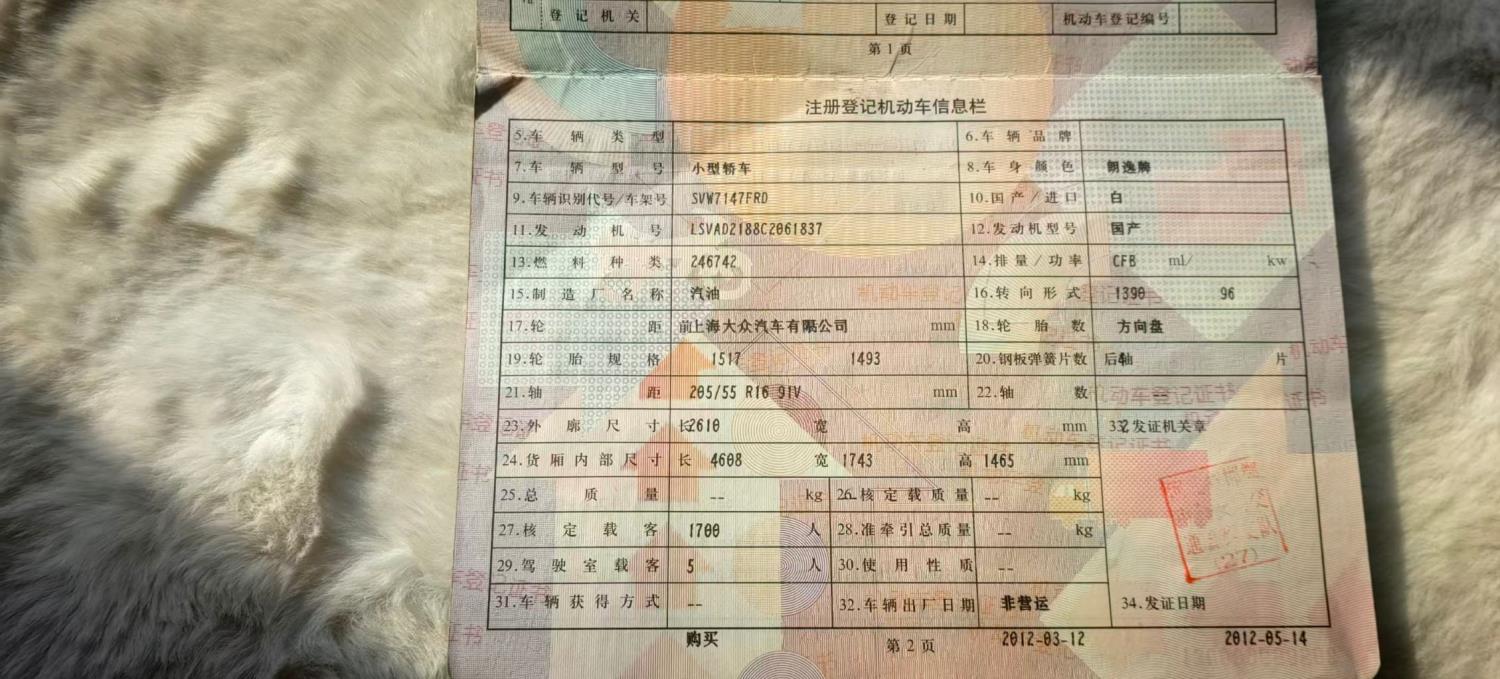 登记机关 登记日期 机动车登记编号
第1页
注册登记机动车信息栏
5.车辆类型 6.车辆品牌
7.车辆型号 小型轿车 8.车身颜色 朗逸牌
9.车辆识别代号/车架号 SVW7147FRD 10.国产/进口 白
11.发动机号 LSVAD2188C2061837 12.发动机型号 国产
13.燃料种类 246742 14.排量/功率 CFB ml/ kw
15.制造厂名称 汽油 16.转向形式 1390 96
17.轮距 前上海大众汽车有限公司 mm 18.轮胎数 方向盘
19.轮胎规格 1517 1493 20.钢板弹簧片数 后4轴 片
21.轴距 205/55 R16 91V mm 22.轴数
23.外廓尺寸 长2610 宽 高 mm 33.发证机关章
24.货厢内部尺寸 长 4608 宽 1743 高 1465 mm
25.总质量 -- kg 26.核定载质量 -- kg
27.核定载客 1700 人 28.准牵引总质量 -- kg
29.驾驶室载客 5 人 30.使用性质 --
31.车辆获得方式 -- 32.车辆出厂日期 非营运 34.发证日期
购买 第2页 2012-03-12 2012-05-14